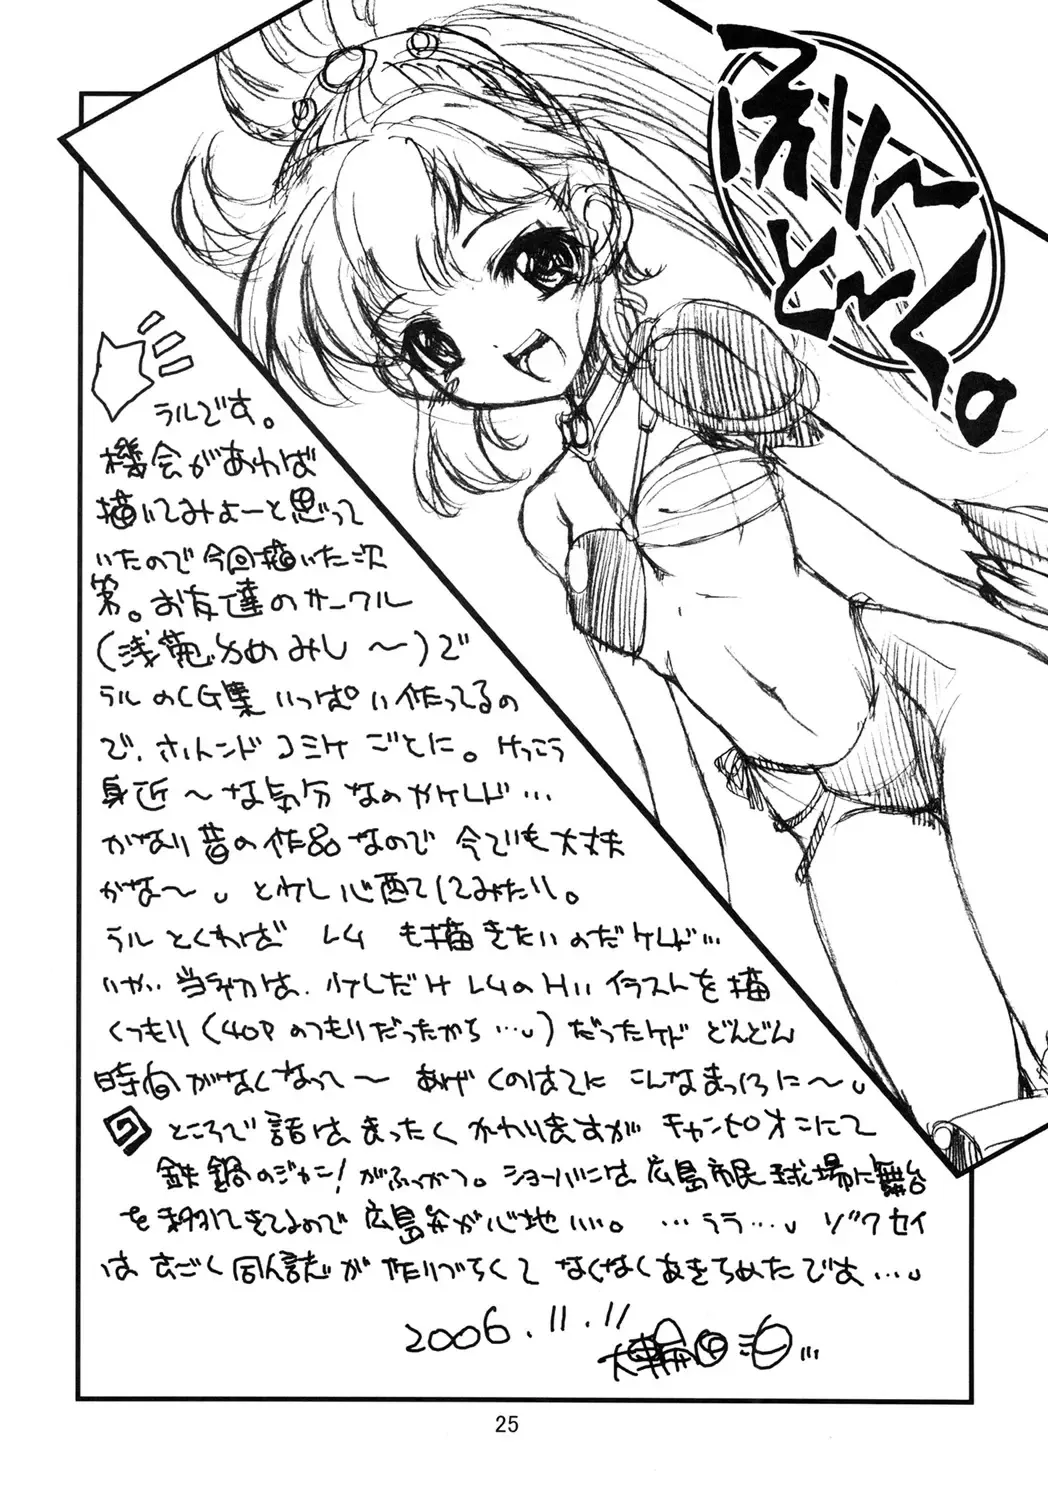 ふりーとーく。
ラルです。
機会があれば
描いてみよーと思って
いたので今回描いた次
第。お友達のサークル
(浅葱 かめみし〜)で
ラルのCG集いっぱい作ってるの
で、ホトンドコミケごとに。けっこう
身近〜な気分なのかケレド…
かなり昔の作品なので今でも大丈夫
かな〜。と少し心配してみたり。
ラルとくれば レムも描きたいのだケレド…
いや、当初は、少しだけレムのHいイラストを描
くつもり(40Pのつもりだったから…。)だったケド どんどん
時間がなくなって〜 あげくのはてにこんなまっ
ところで話はまったくかわりますが チャンピオンにて
鉄鍋のジャン!がふっかつ。ショーバンは広島市民球場に舞台
を移してきてるので広島弁が心地いい。…うう…。ゾクセイ
はすごく同人誌が作りづらくてなくなくあきらめたです…。
2006.11.11
25